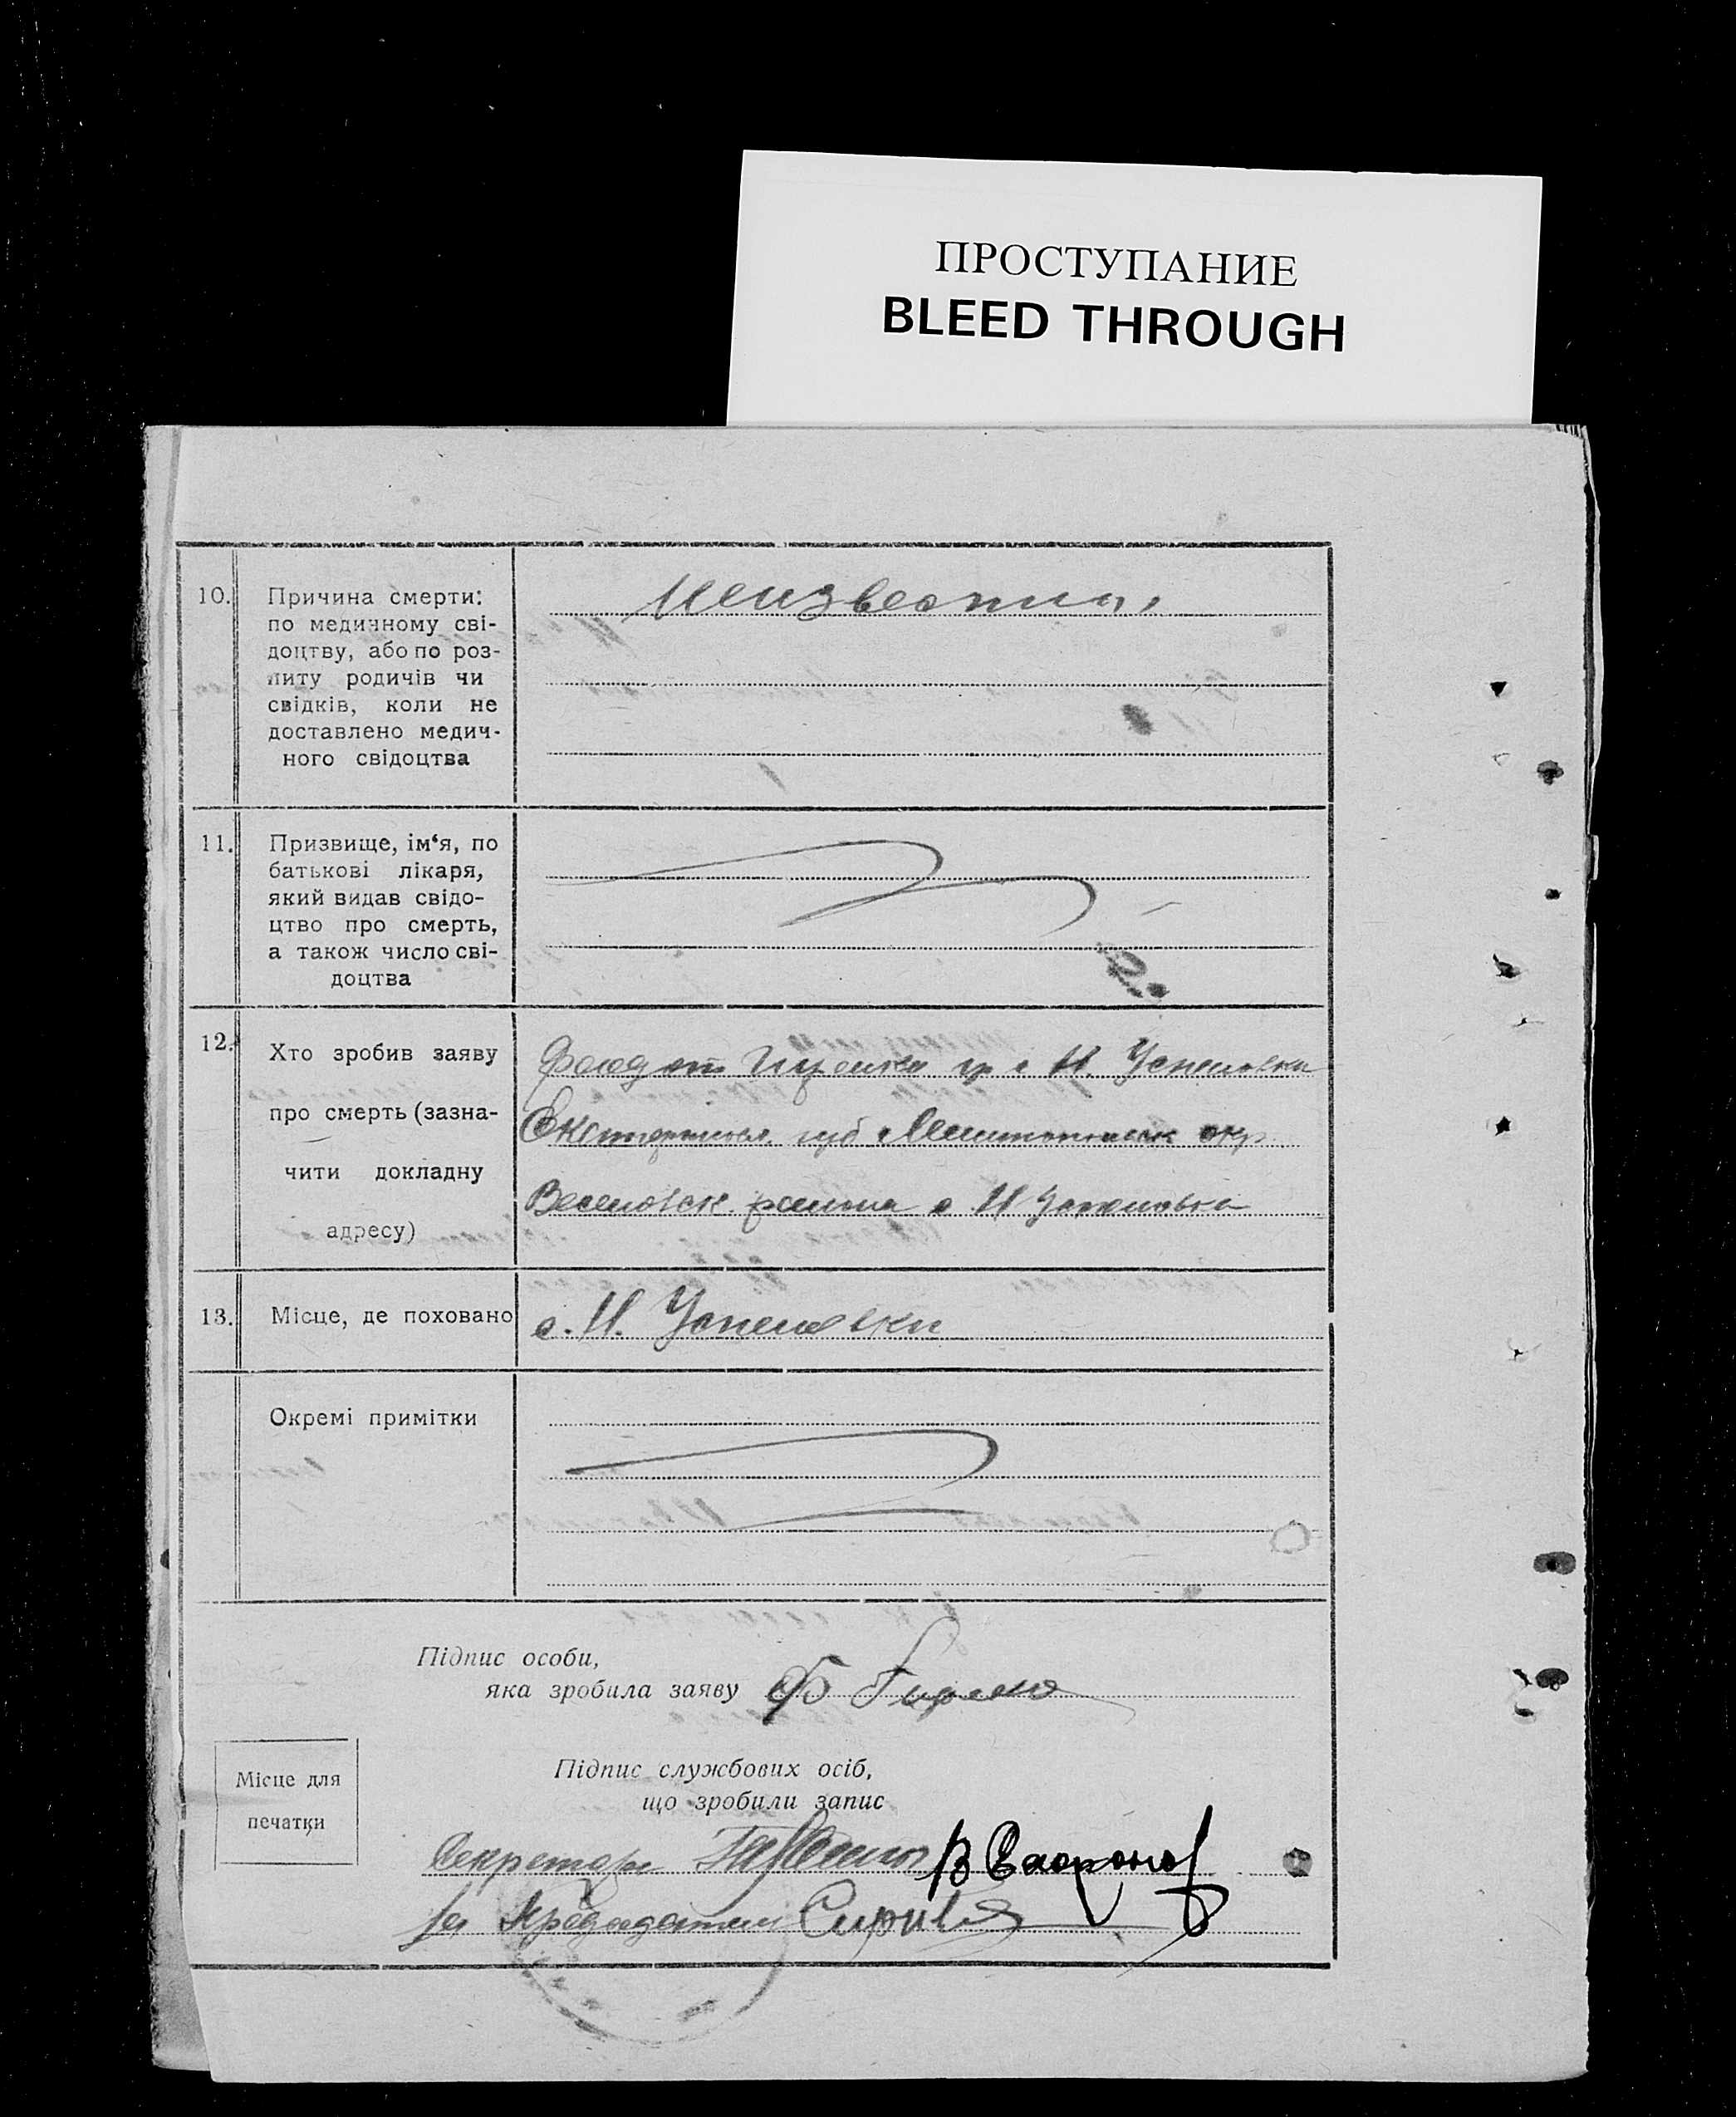 ПРОСТУПАНИЕ
BLEED THROUGH
10. Причина смерти:
по медичному сві-
доцтву, або по роз-
питу родичів чи
свідків, коли не
доставлено медич-
ного свідоцтва
Неизвестна
11. Призвище, ім‘я, по
батькові лікаря,
який видав свідо-
цтво про смерть,
а також число сві-
доцтва
12. Хто зробив заяву
про смерть (зазна-
чити докладну
адресу)
гр с Н. Успеновки
губ Мелитопольск окр
Веселовск. района с Н Успеновка
13. Місце, де поховано
с. Н. Успеновки
Окремі примітки
Підпис особи,
яка зробила заяву
Ф
Місце для
печатки
Підпис службових осіб,
що зробили запис
Секретарь
Председатель